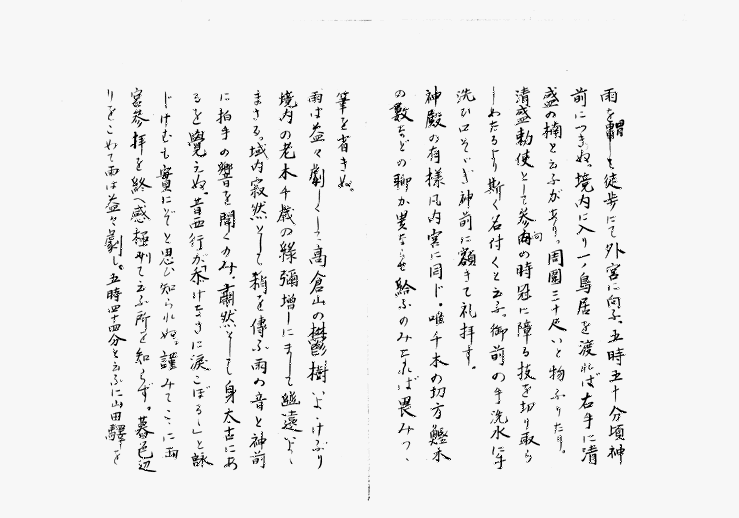 雨を冒して徒歩にて外宮に向ふ。五時五十分頃神
前につきぬ。境内に入り一ノ鳥居を渡れば右手に清
盛の楠と云ふがあり。周囲三十尺いと物ふりたり。
清盛勅使として参向の時冠に障る枝を切り取ら
しめたるより斯く名付くと云ふ。御前の手洗水に手
洗ひ口そゝぎ神前に額きて礼拝す。
神殿の有様凡内宮に同じ。唯千木の切方鰹木
の数などの聊か異ならせ給ふのみなれば畏みつゝ
筆を省きぬ。
雨は益々劇しくして高倉山の欝樹いよゝけぶり
境内の老木千歳の緑彌増しにまして幽遠いよゝ
まさる。域内寂然として梢を傳ふ雨の音と神前
に拍手の響を聞くのみ、肅然として身太古にあ
るを覺えぬ。昔西行が「忝けなさに涙こぼるゝ」と詠
じけむも實にぞと思ひ知られぬ。謹みてこゝに両
宮参拝を終へ感極りて云ふ所を知らず。暮色辺
りをこめて雨は益々劇し。五時四十四分と云ふに山田驛を